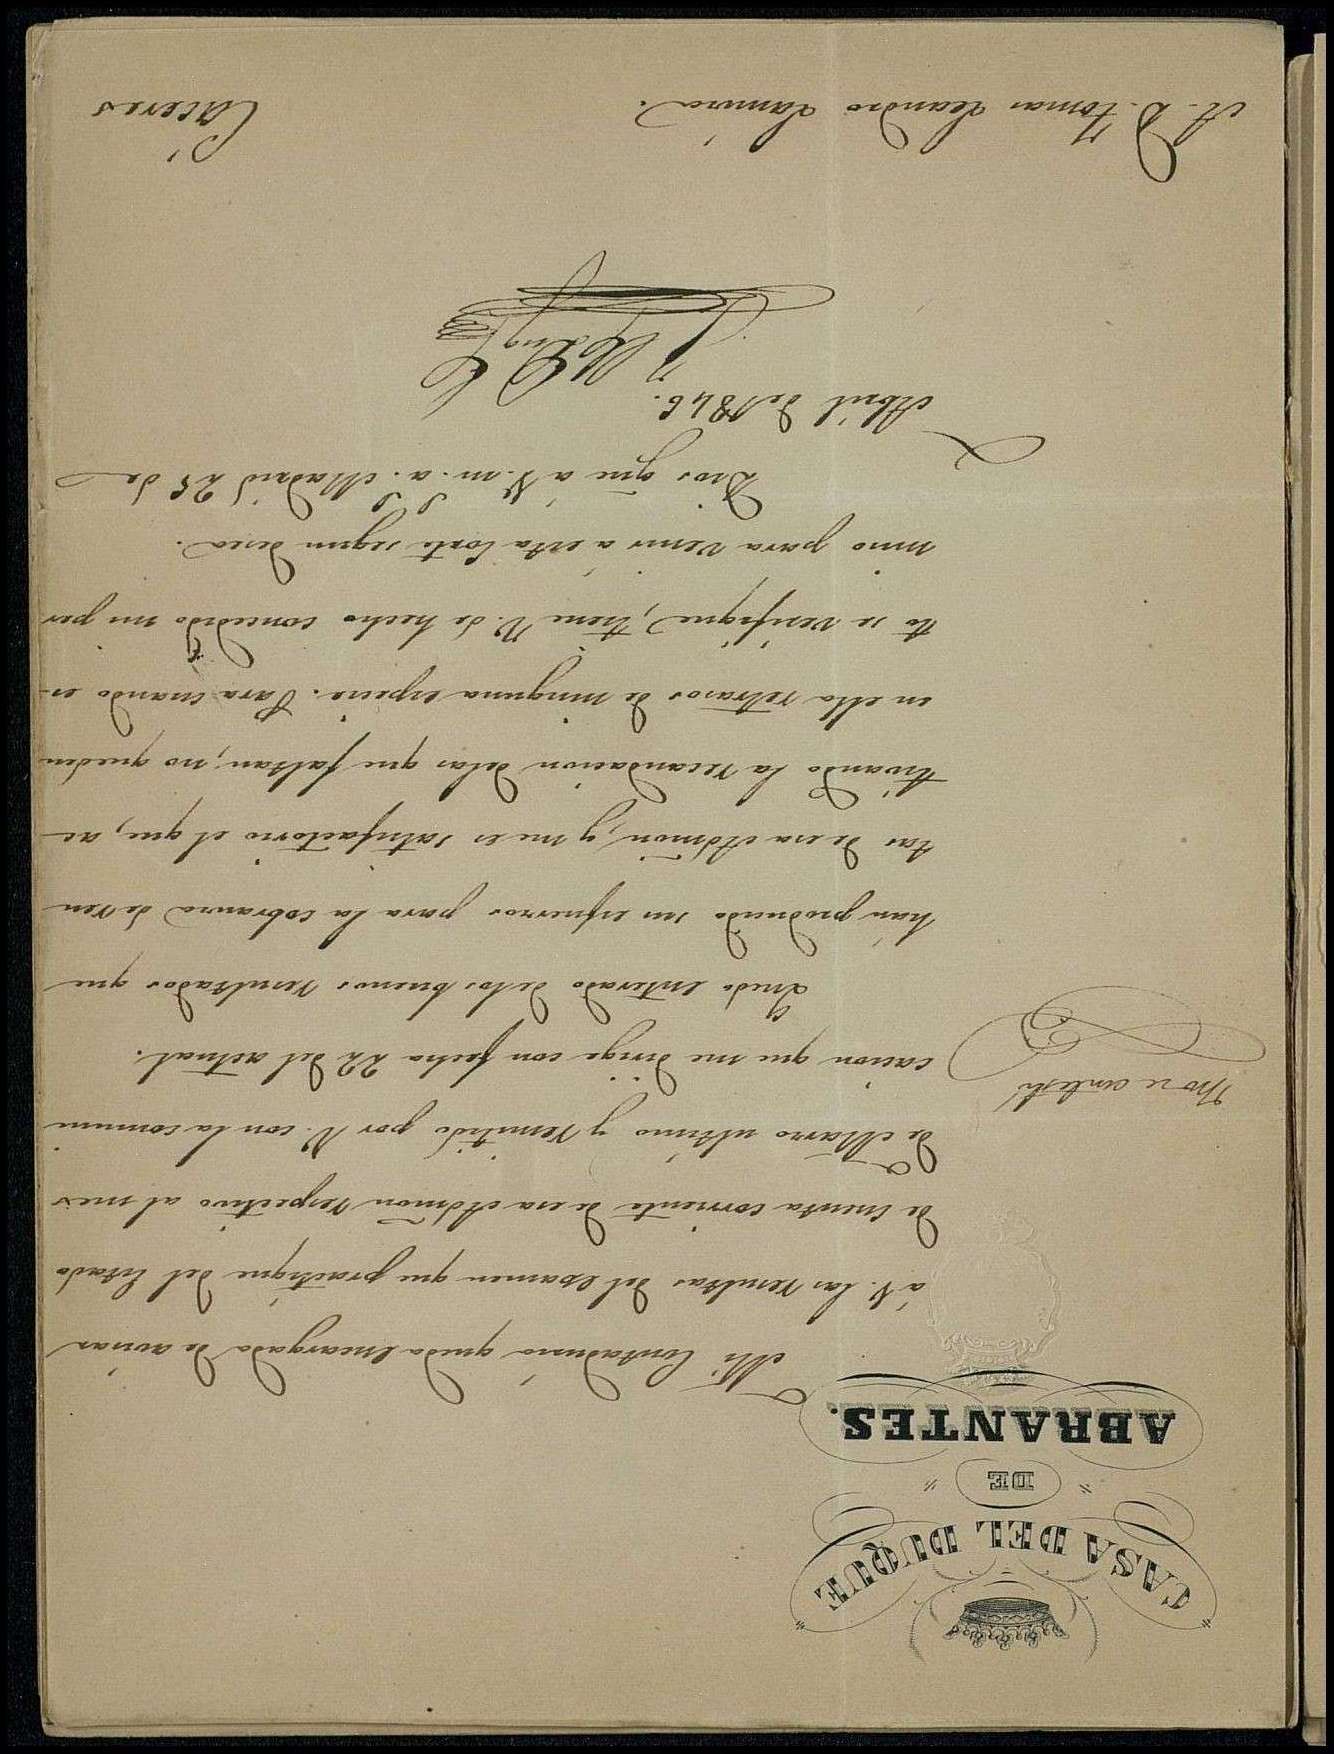 CASA DEL DUQUE
DE
ABRANTES.
Mi Contaduria queda encargada de avisar
á V. las resultas del examen que practique del Estado
de cuenta corriente de esa Admon respectivo al mes
de Marzo ultimo y remitido por V. con la comuni
cacion que me dirige con fecha 22 del actual.
No se contestó
Quedo enterado delos buenos resultados que
han producido sus esfuerzos para la cobranza de ren
tas de esa Admon, y me es satisfactorio el que, ac
tivando la recaudacion delas que faltan, no queden
en ella retrasos de ninguna especie. Para cuando es-
to se verifique, tiene V. de hecho concedido mi per
miso para venir á esta Corte segun desea.
Dios gue á V. m. a. Madrid 25 de
Abril de 1846.
El Duq
A. D. Tomas Leandro
Cáceres